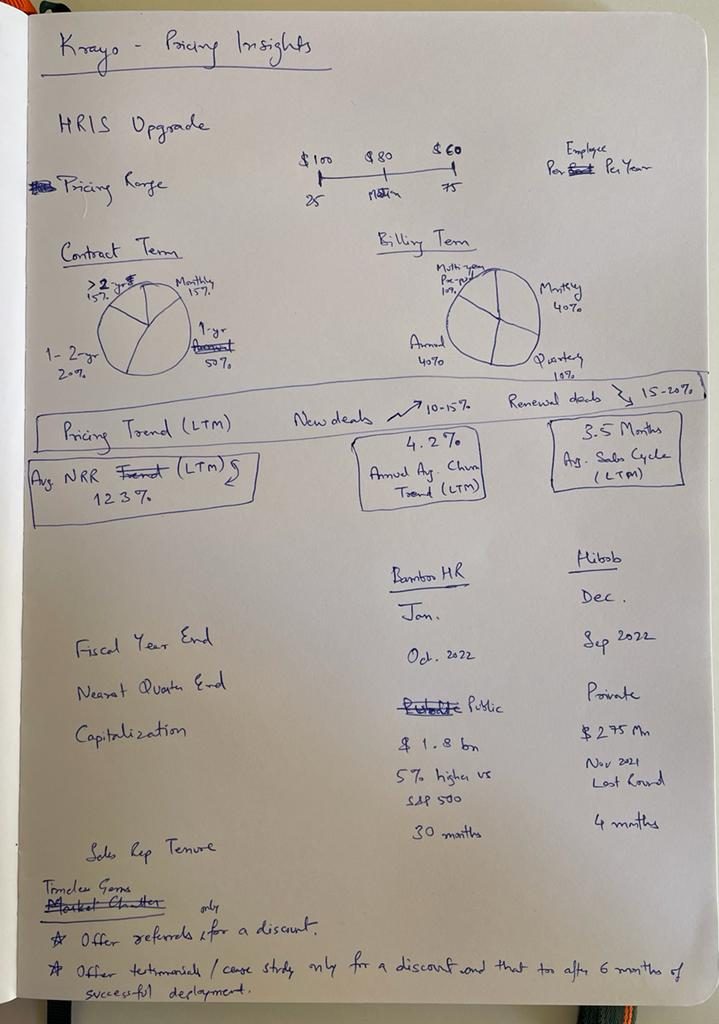 Krayo - Pricing Insights
HRIS Upgrade
$100 $80 $60
Employee
Pricing Range
Per Per Year
25 Median 75
Contract Term
Billing Term
>2-yrs
15%
Monthly
15%
1-yr
50%
1-2-yr
20%
Multi-year
Pre-paid
10%
Monthly
40%
Annual
40%
Quarterly
10%
Pricing Trend (LTM) New deals ↗ 10-15% Renewal deals ↘ 15-20%
Avg. NRR Trend (LTM)
123%
4.2%
Annual Avg. Churn
Trend (LTM)
3.5 Months
Avg. Sales Cycle
(LTM)
Bamboo HR Hibob
Fiscal Year End Jan. Dec.
Nearest Quarter End Oct. 2022 Sep 2022
Capitalization Public Private
$1.8 bn $275 Mn
5% higher vs
S&P 500
Nov 2021
Last Round
Sales Rep Tenure 30 months 4 months
Timeless Gems
Market Chatter
☆ Offer referrals only for a discount.
☆ Offer testimonials / case study only for a discount and that too after 6 months of
successful deployment.